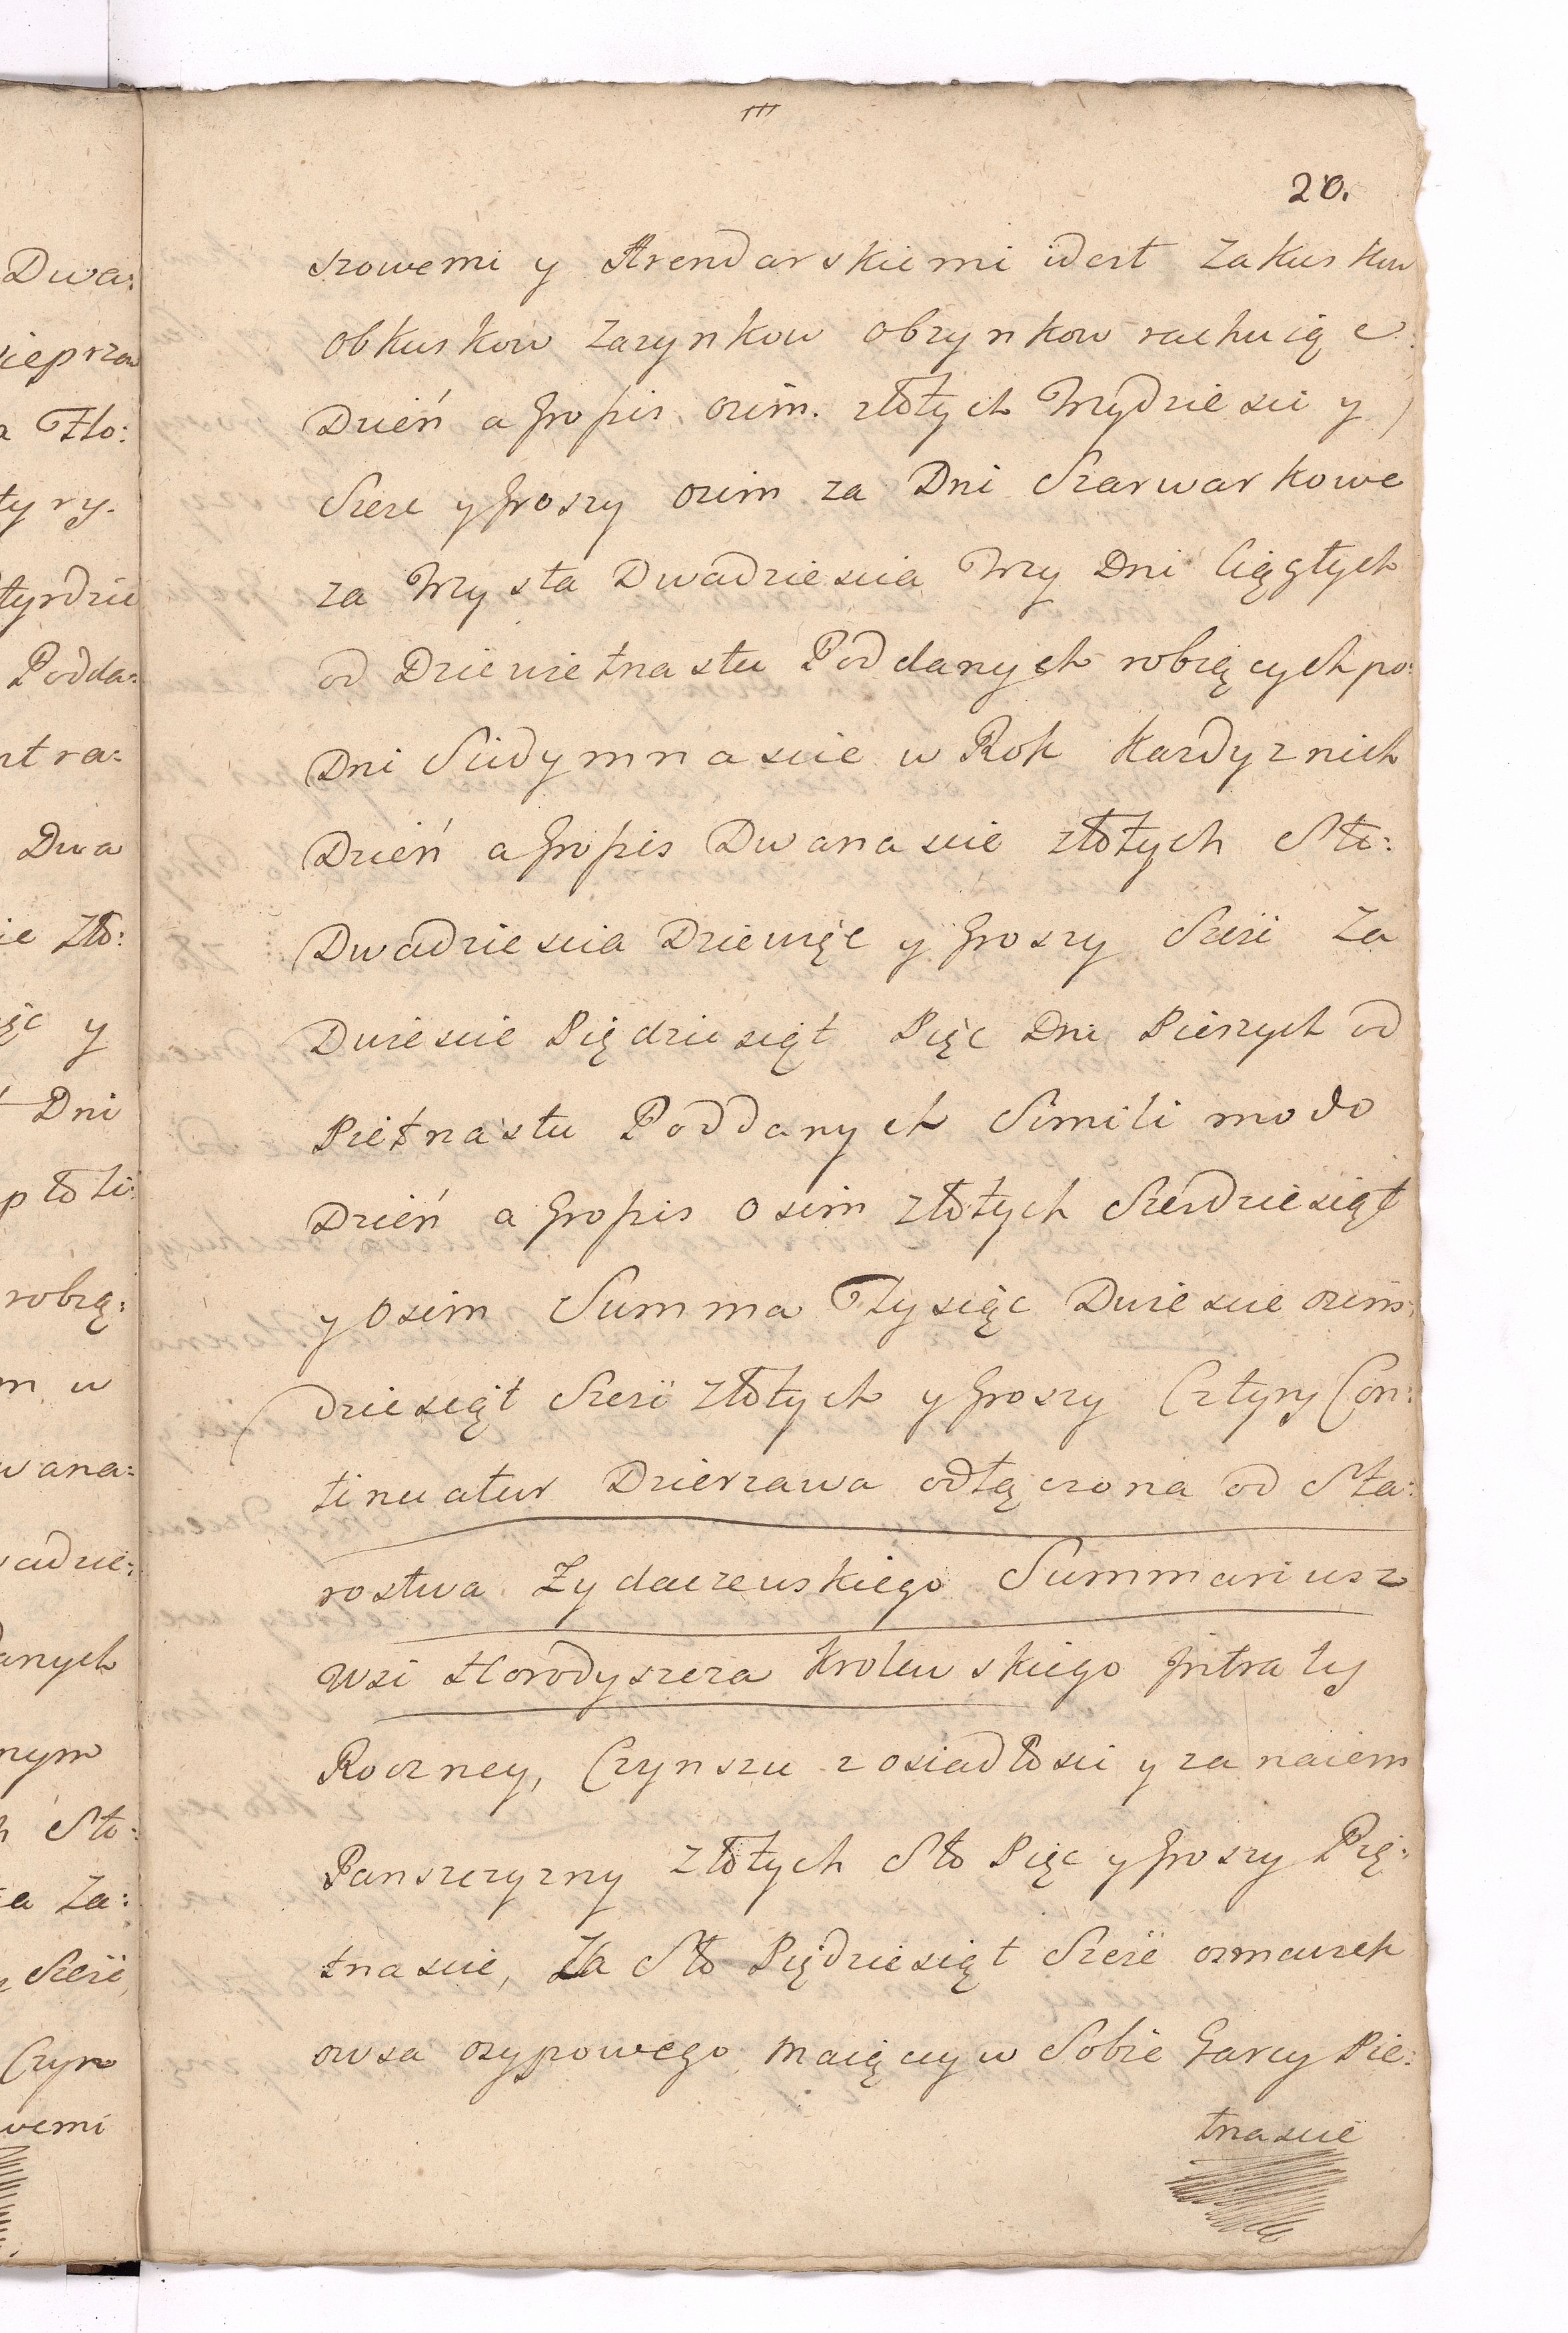 20.
szowemi y Arendarskiemi idest Zakuskow
obkuskow Zazynkow obzynkow rachuiąc
Dzień a gropis osim. złotych Trzydziesci y
Szesc y groszy osim za Dni Szarwarkowe
za Trzysta Dwadziescia Trzy Dni Ciągłych
od Dziewietnastu Poddanych robiących po:
Dni Siedymnascie w Rok Kazdy z nich
Dzień a gropis Dwanascie złotych Sto:
Dwadziescia Dziewięc y groszy Szesć Za
Dwiescie Piędziesiąt Pięc Dni Pieszych od
Pietnastu Poddanych Simili modo
Dzień a gropis Osim złotych Szesdziesiąt
y Osim Summa Tysiąc Dwiescie osim:
dziesiąt Szesć złotych y groszy Cztyry Con:
tinuatur Dzierzawa odłączona od Sta:
rostwa Zydaczewskiego Summariusz
Wsi Horodyszcza Krolewskiego Intraty
Roczney, Czynszu z osiadłosci y za naiem
Panszczyzny Złotych Sto Pięc y groszy Pię:
tnascie, Za Sto Piędziesiąt Szesć osmaczek
owsa osypowego Maiącey w Sobie Garcy Pie:
tnascie
Dwa:
ieprzow
a Zło:
tyry.
tyrdzie
Podda:
ntra:
Dwa
ie Zło:
ęc y
Dni
robią:
m w
wana:
wadzie:
danych
nym
h Sto:
ia Za:
Szesć
Czyn
wemi